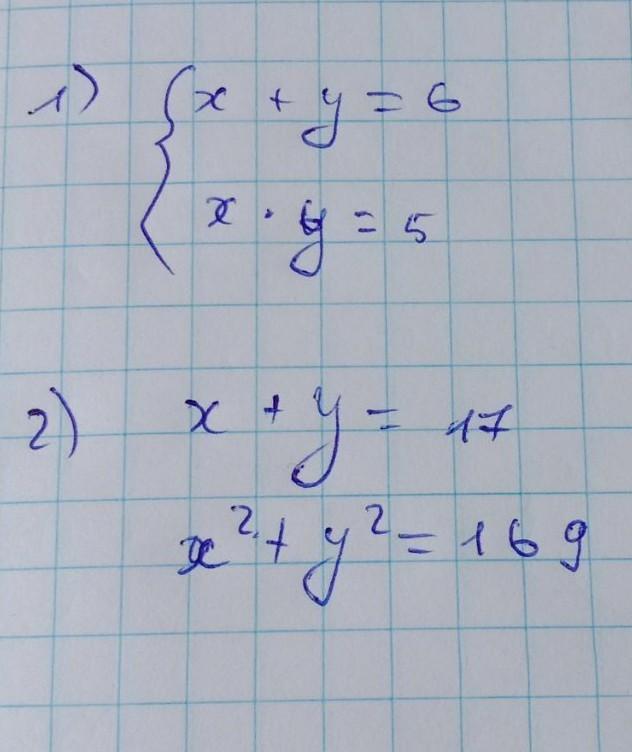 1) { x + y = 6
x · y = 5
2) x + y = 17
x² + y² = 169